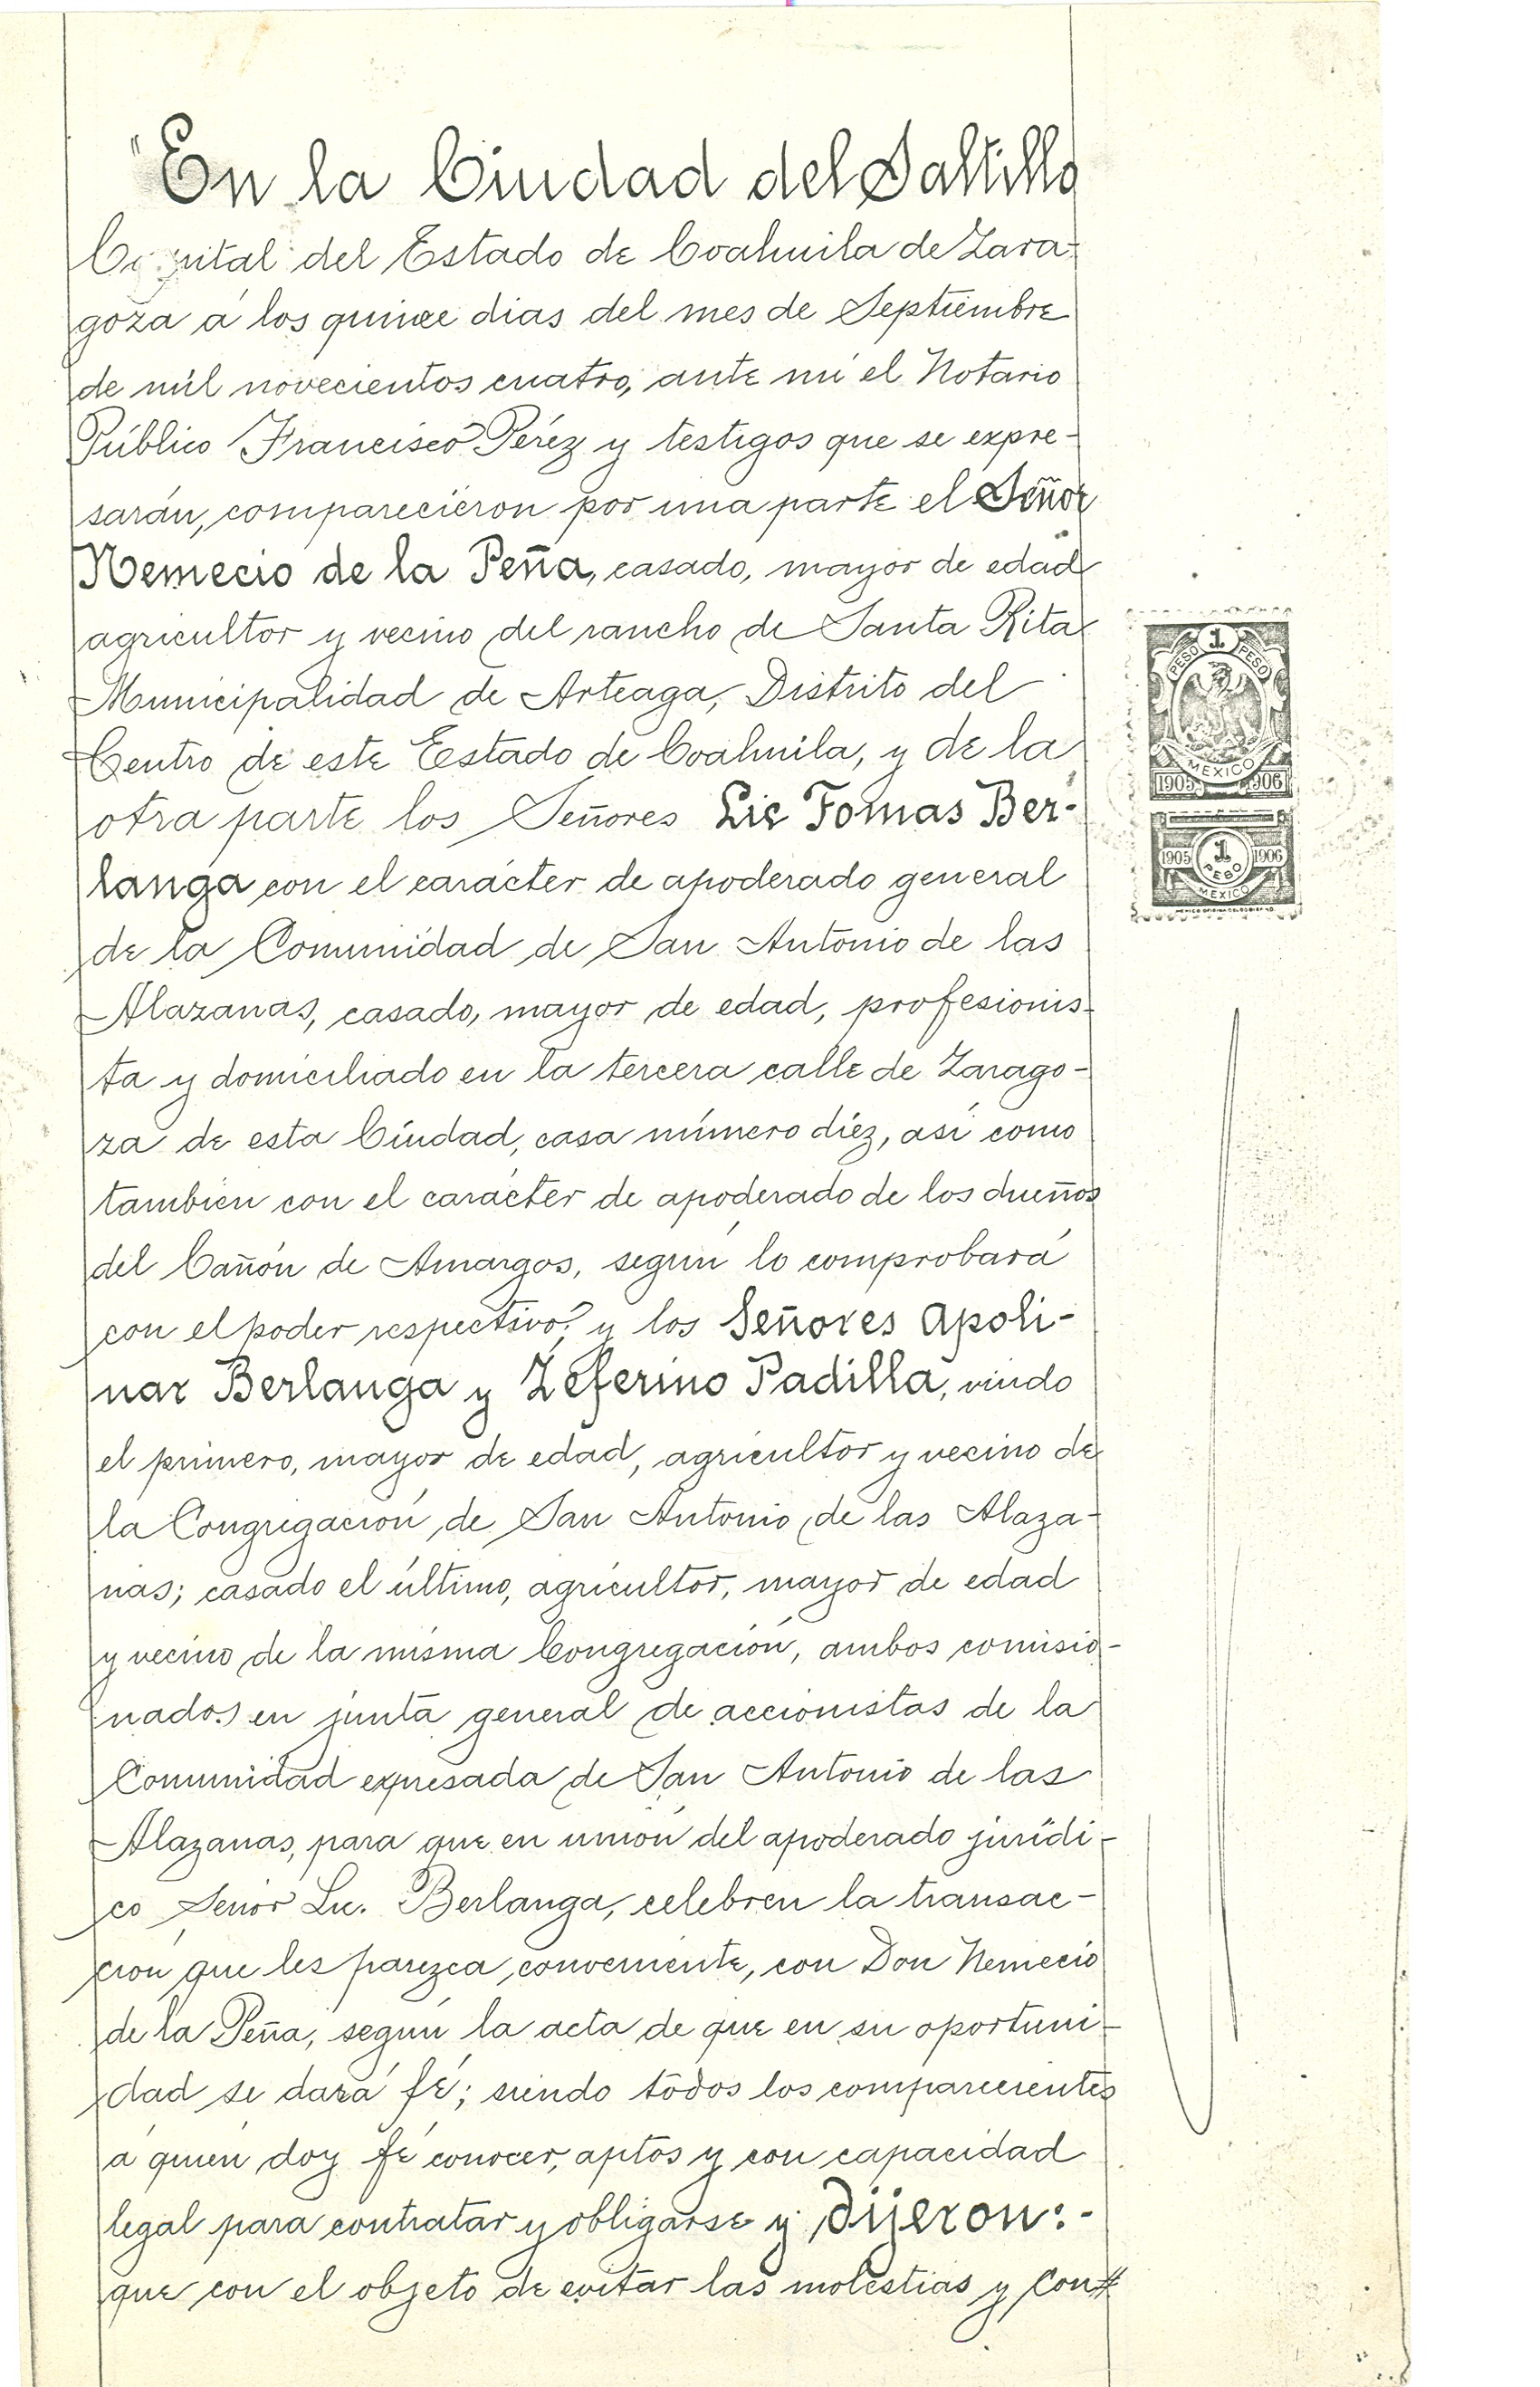 "En la Ciudad del Saltillo
Capital del Estado de Coahuila de Zara-
goza á los quince dias del mes de Septiembre
de mil novecientos cuatro, ante mi el Notario
Público Francisco Pérez y testigos que se expre-
sarán, comparecieron por una parte el Señor
Nemecio de la Peña, casado, mayor de edad
agricultor y vecino del rancho de Santa Rita
Municipalidad de Arteaga, Distrito del
Centro de este Estado de Coahuila, y de la
otra parte los Señores Lic Tomas Ber-
langa con el carácter de apoderado general
de la Comunidad de San Antonio de las
Alazanas, casado, mayor de edad, profesionis-
ta y domiciliado en la tercera calle de Zarago-
za de esta Ciudad, casa número diéz, así como
tambien con el carácter de apoderado de los dueños
del Cañón de Amargos, según lo comprobará
con el poder respectivo; y los Señores Apoli-
nar Berlanga y Zeferino Padilla, viudo
el primero, mayor de edad, agricultor y vecino de
la Congregación de San Antonio de las Alaza-
nas; casado el último, agricultor, mayor de edad
y vecino de la misma Congregación, ambos comisio-
nados en junta general de accionistas de la
Comunidad expresada de San Antonio de las
Alazanas, para que en unión del apoderado jurídi-
co Señor Lic. Berlanga, celebren la transac-
ción que les parezca conveniente, con Don Nemecio
de la Peña, según la acta de que en su oportuni-
dad se dará fé; siendo todos los comparecientes
á quien doy fé conocer, aptos y con capacidad
legal para contratar y obligarse y dijeron:-
que con el objeto de evitar las molestias y con#
1
PESO PESO
MEXICO
1905 1906
1905 1 1906
PESO
MEXICO